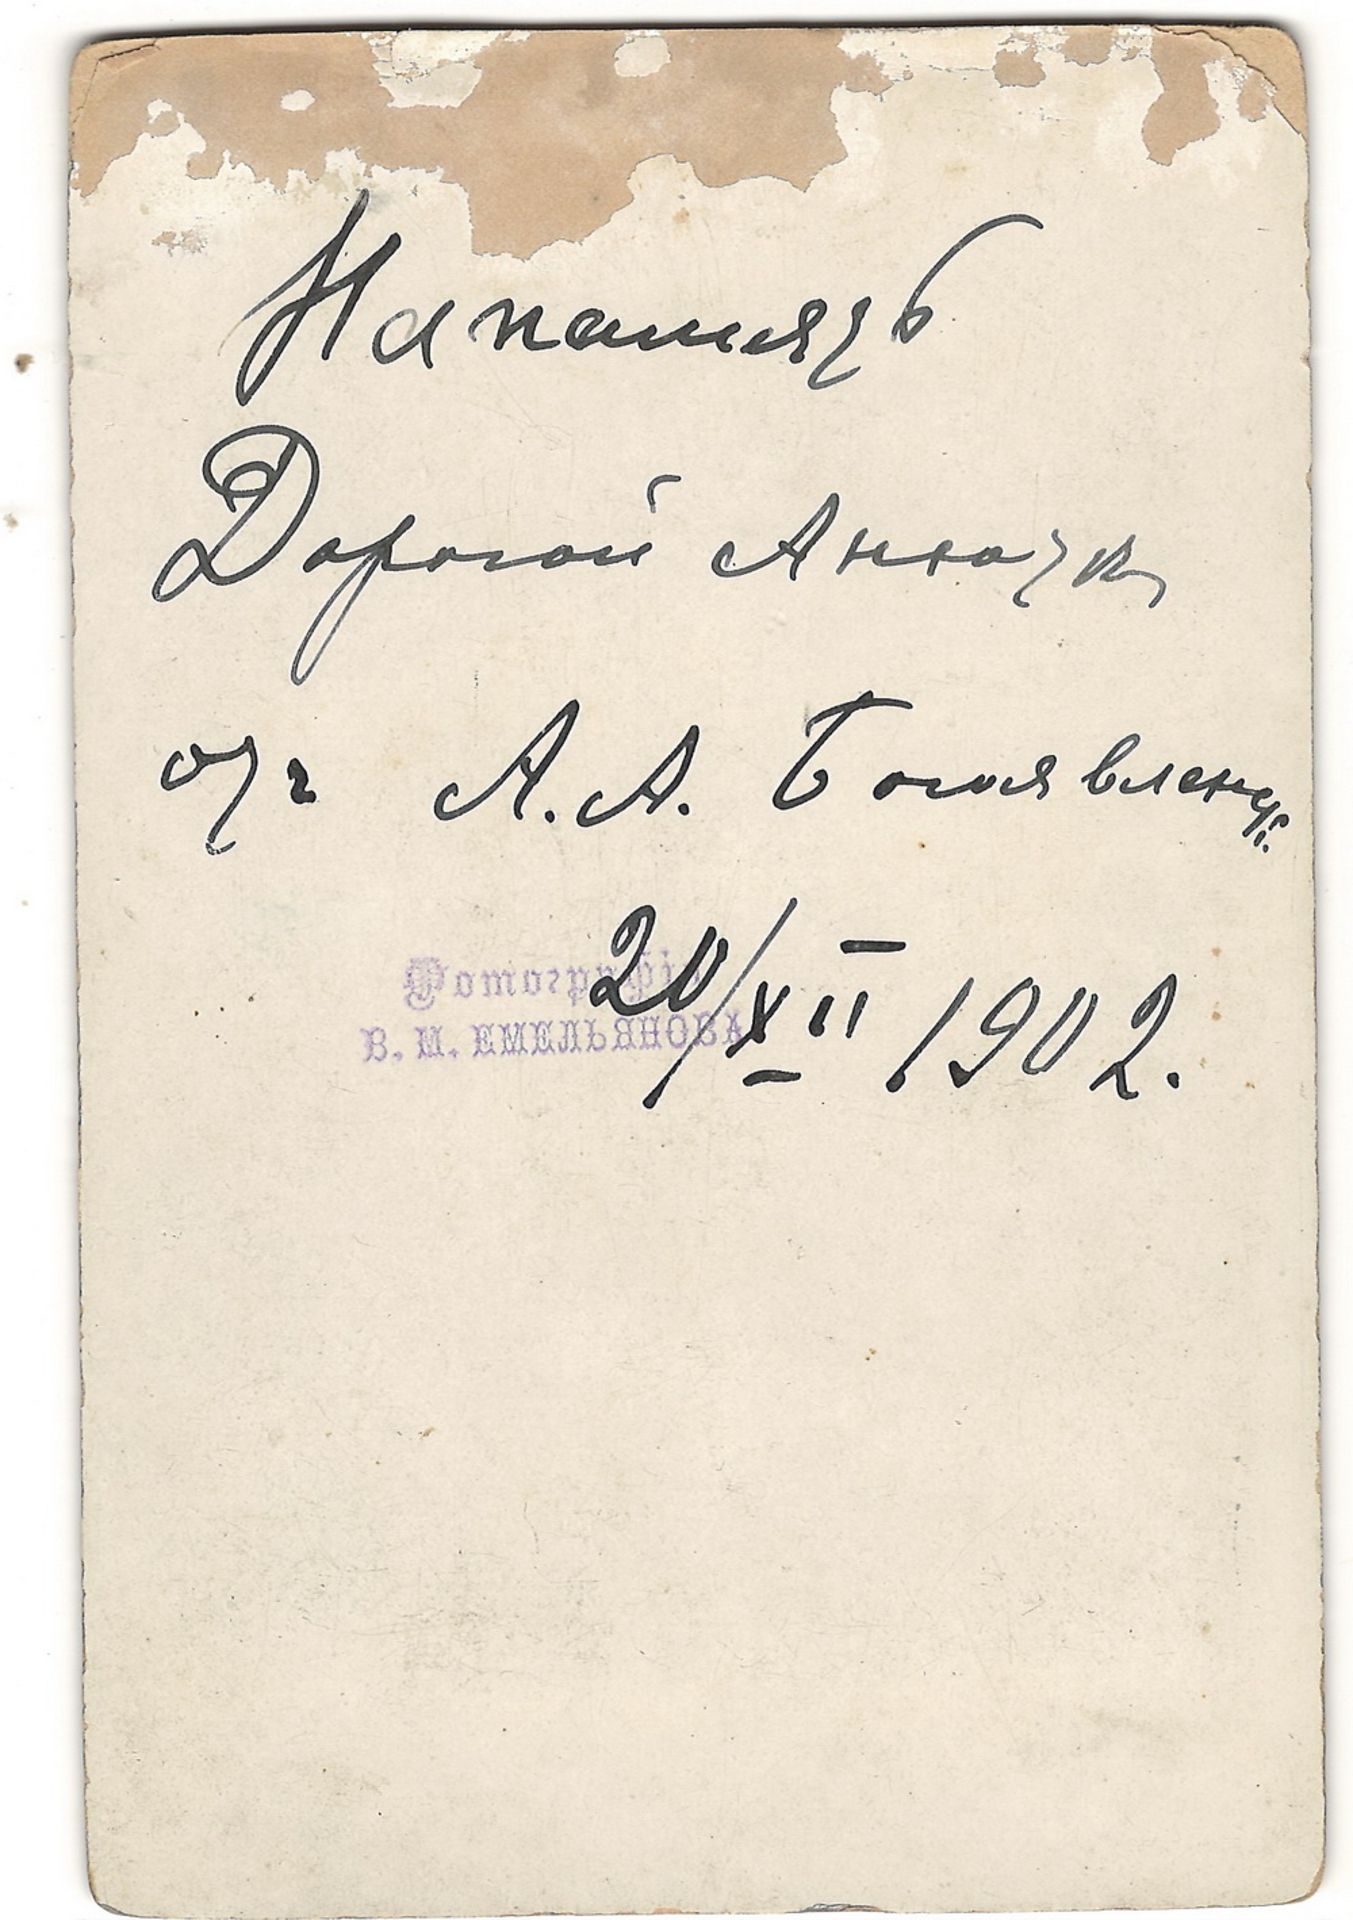 На память
Дорогой Анюти
отъ А. А. Богоявленск.
20/XII 1902.
Фотографія
В. М. ЕМЕЛЬЯНОВА